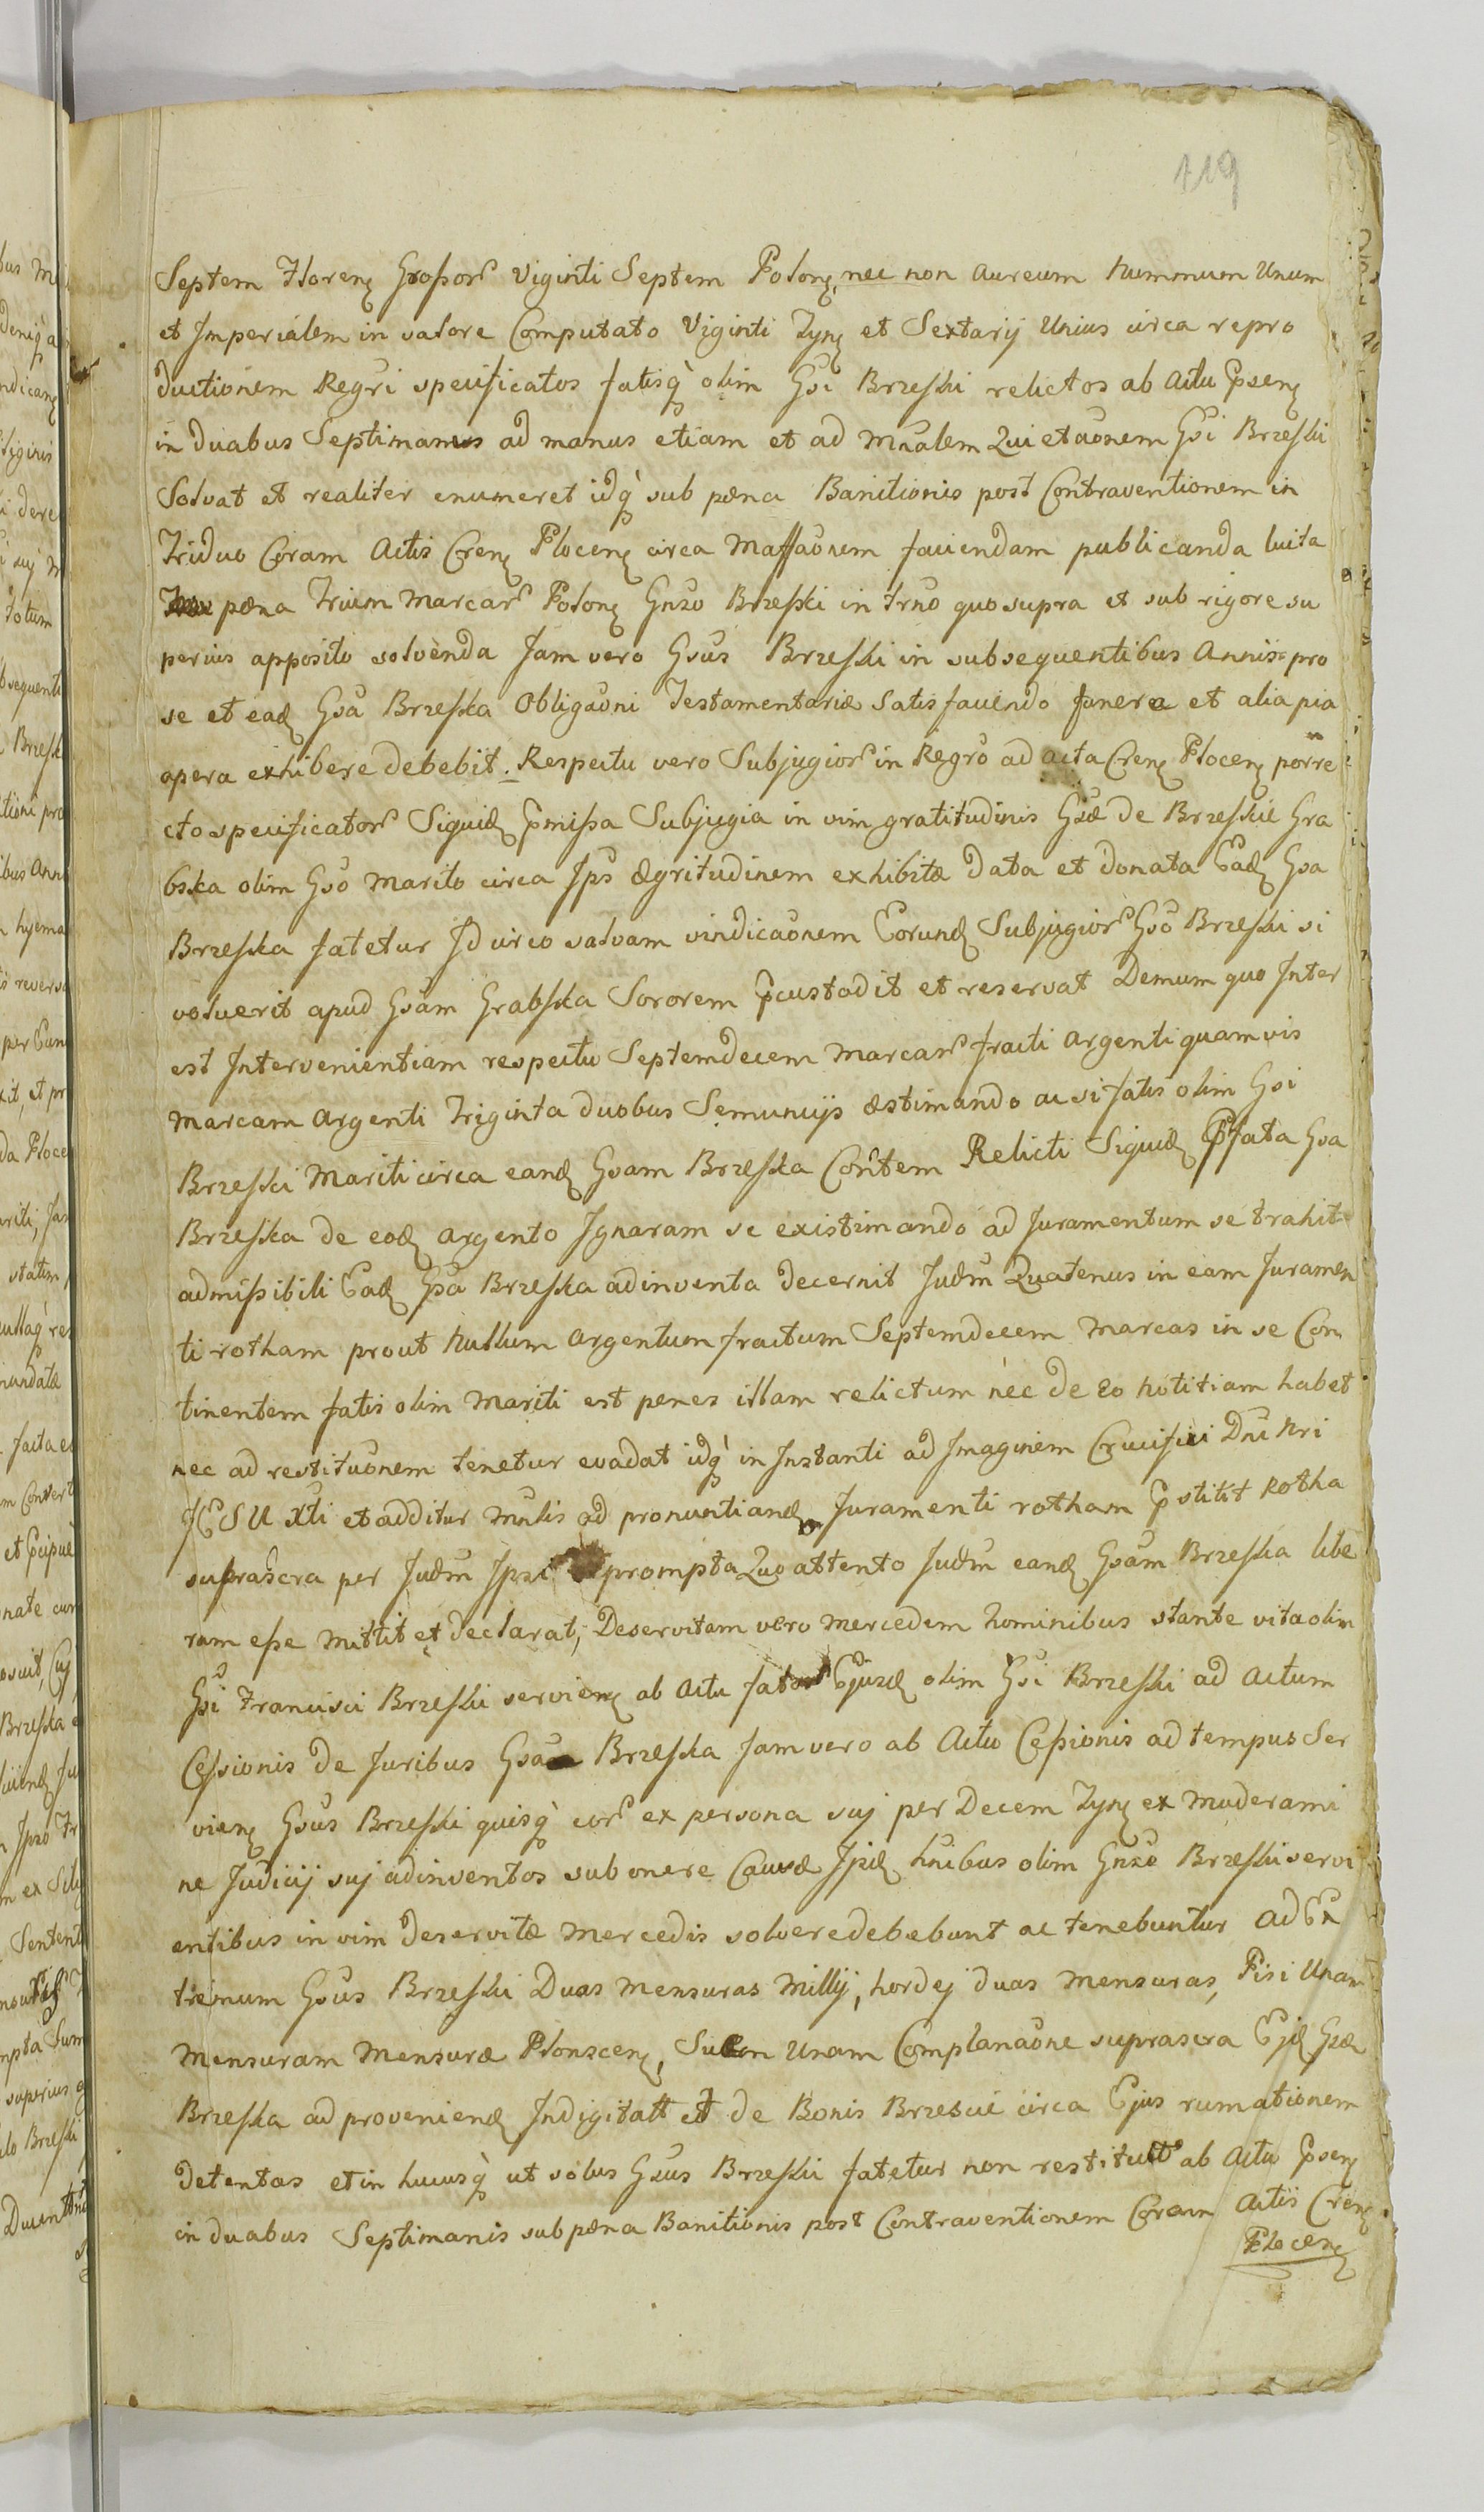 119
Septem Floren Großor Viginti Septem Polon, nec non aureum nummum Unum
et Imperialem in valore Computato Viginti Tyn et Sextarij Unius circa repro
ductionem Regri specificatos fatisq olim Gsi Brzeski relictos ab actu Psen
in duabus Septimanis ad manus etiam et ad Mnalem Quietaonem Gsi Brzeski
Solvat et realiter enumeret idq sub pæna Banitionis post Contraventionem in
Triduo Coram Actis Cren Plocen circa Maffaonem faciendam publicanda luita
pæna Trium Marcar Polon Gnso Brzeski in trno quo supra et sub rigore su
perius apposito solvenda Jam vero Gsus Brzeski in subsequentibus Annis pro
se et ead Gsa Brzeska Obligaoni Testamentariæ Satisfaciendo funera et alia pia
opera exhibere debebit. Respectu vero Subjugior in Regro ad acta Cren Plocen porre
cto specificator Siquid Pmißa Subjugia in vim gratitudinis Gsæ de Brzeskie Gra
bska olim Gso Marito circa Ips ægritudinem exhibitæ data et donata Ead Gsa
Brzeska fatetur Idcirco salvam vindicaonem Eorund Subjugior Gso Brzeski si
voluerit apud Gsam Grabska Sororem Pcustodit et reservat Demum quo Inter
est Intervenientiam respectu Septemdecem Marcar fracti Argenti quamvis
Marcam Argenti Triginta duobus Semuncijs æstimando ac si fatis olim Gsi
Brzeski Mariti circa eand Gsam Brzeska Contem Relicti Siquid Pfata Gsa
Brzeska de eod Argento Ignaram se existimando ad Juramentum se trahit
admißibili Ead Gsa Brzeska adinventa decernit Judm Quatenus in eam Juramen
ti rotham prout Nullum Argentum fractum Septemdecem Marcas in se Con
tinentem fatis olim Mariti est penes illam relictum nec de eo notitiam habet
nec ad restituonem tenetur evadat idq in Instanti ad Imaginem Crucifixi Dni Nri
JESU Xti et additur Mnlis ad pronuntiand Juramenti rotham Pstitit Rotha
suprascra per Judm Ipsi prompta Quo attento Judm eand Gsam Brzeska libe
ram eße mittit et declarat, Deservitam vero mercedem hominibus stante vita olim
Gsi Francisci Brzeski servien ab Actu fator Ejusd olim Gsi Brzeski ad Actum
Ceßionis de Juribus Gsa Brzeska Jam vero ab Actu Ceßionis ad tempus Ser
vien Gsus Brzeski quisq eor ex persona suj per Decem Tyn ex Moderami
ne Judicij suj adinventos sub onere Causæ Ipid hnibus olim Gnso Brzeski servi
entibus in vim deservitæ mercedis solvere debebunt ac tenebuntur Ad Ex
tremum Gsus Brzeski Duas mensuras Millij, hordej duas mensuras, Pisi Unam
mensuram mensuræ Plonscen, Suem Unam Complanaone suprascra Ejd Gsæ
Brzeska ad provenien Indigitatt et de Bonis Brzescie circa Ejus rumationem
detentas et in hucusq ut solus Gsus Brzeski fatetur non restitutt ab Actu Psen
in duabus Septimanis sub pæna Banitionis post Contraventionem Coram Actis Cren
Plocen